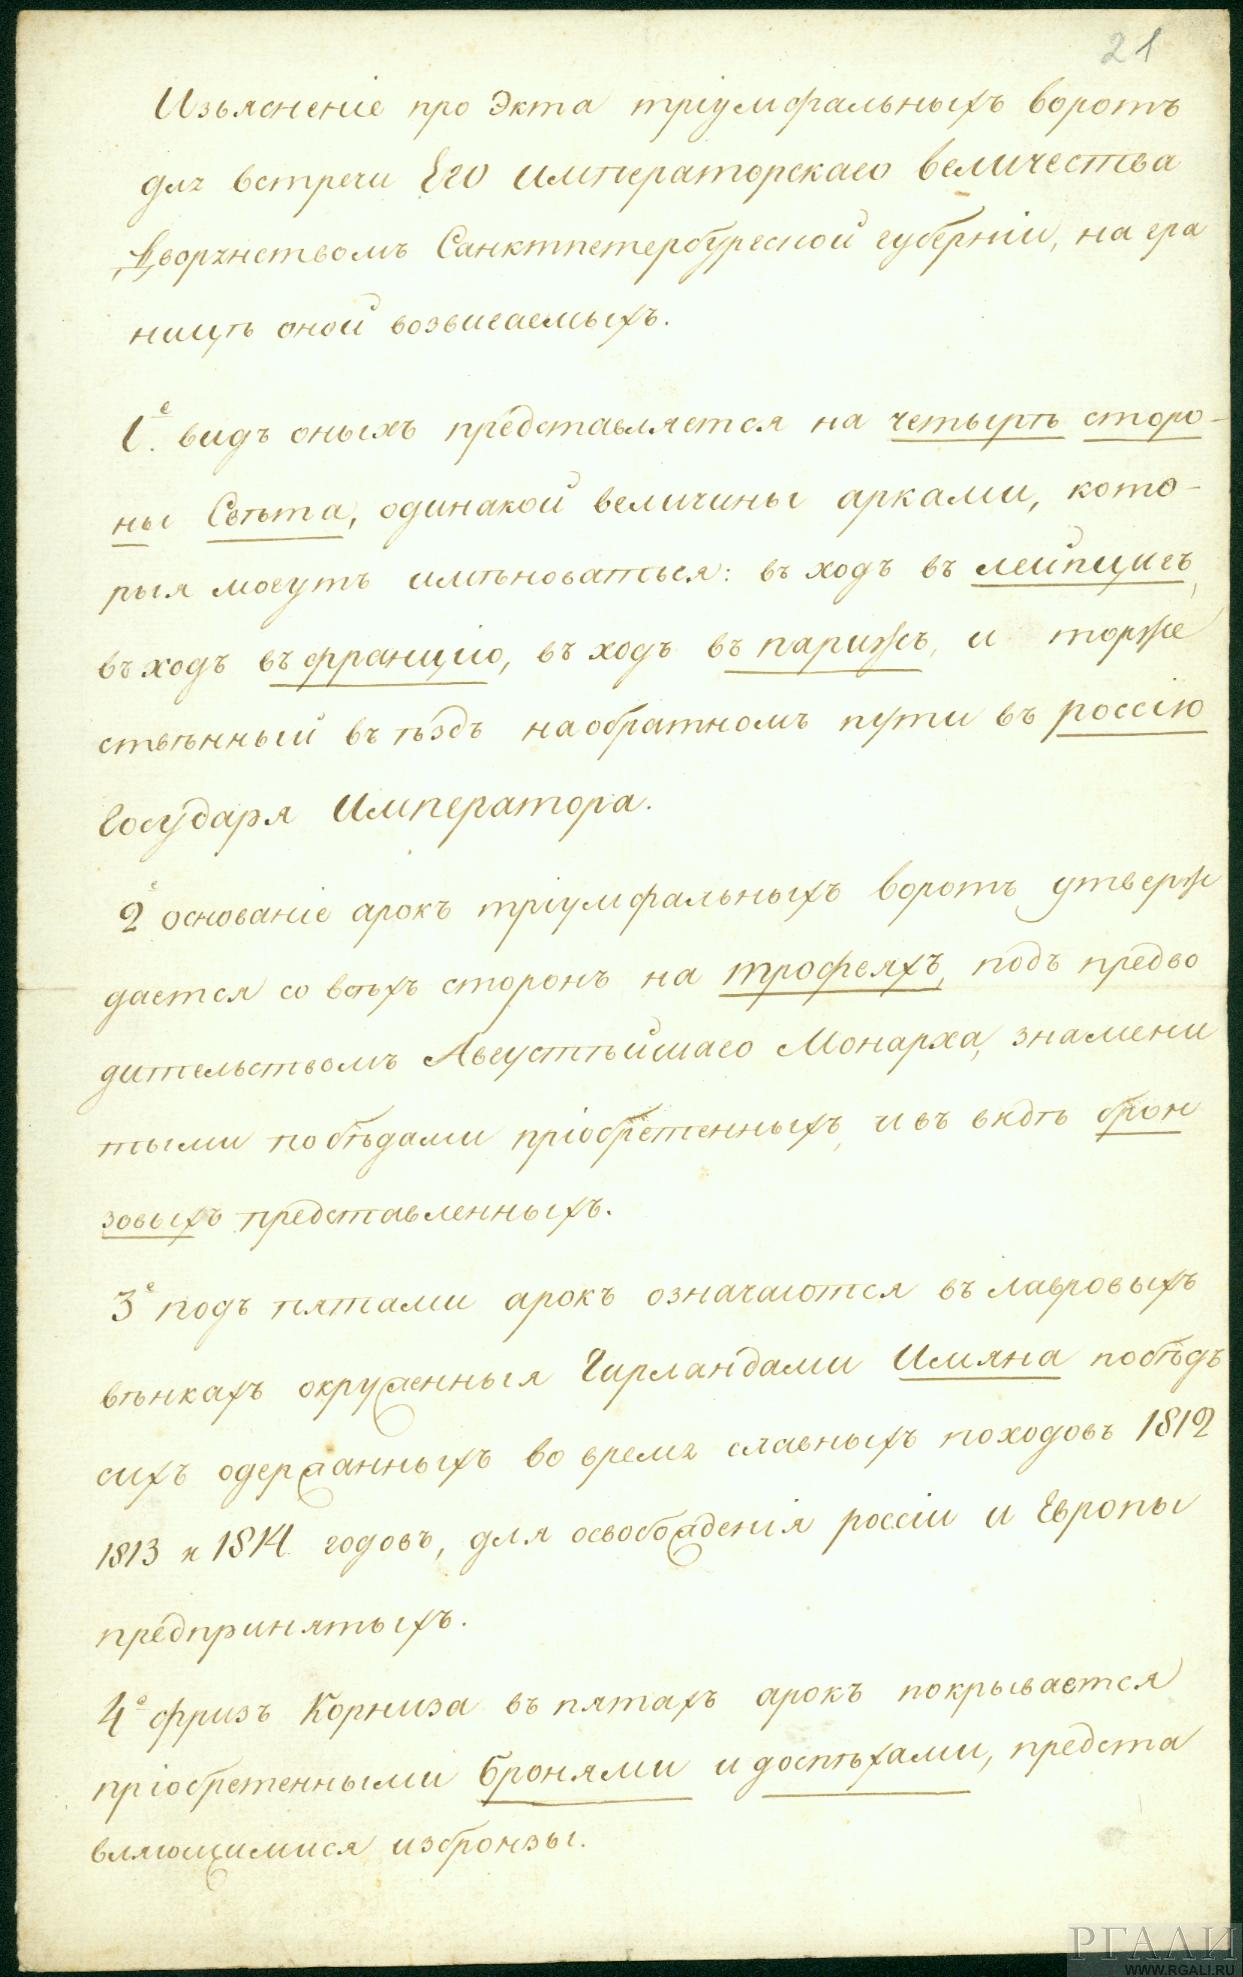 21
Изъясненіе про Экта тріумфальныхъ воротъ
для встречи Его императорскаго величества
Дворянствомъ Санктпетербургской губерніи, на гра
ницѣ оной возвигаемыхъ.
1.е видъ оныхъ представляется на четырѣ сторо-
ны Свѣта, одинакой величины арками, кото-
рыя могутъ имѣноваться: въ ходъ въ лейпцигъ,
въ ходъ въ францию, въ ходъ въ парижъ, и торже
ствѣнный въ ѣздъ на обратномъ пути въ россію
Государя Императора.
2е основаніе арокъ тріумфальныхъ воротъ утверж
дается со всѣхъ сторонъ на трофеяхъ, подъ предво
дительствомъ Августѣйшаго Монарха, знамени
тыми побѣдами пріобретенныхъ, и въ видѣ брон
зовыхъ представленныхъ.
3е подъ пятами арокъ означаются въ лавровыхъ
вѣнкахъ окруженныя Гирландами Имяна побѣдъ
сихъ одержанныхъ во время славныхъ походовъ 1812
1813 и 1814 годовъ, для освобожденія россіи и Европы
предпринятыхъ.
4е фризъ Корниза въ пятахъ арокъ покрывается
пріобретенными бронями и доспѣхами, предста
вляющимися изъ бронзы.
РГАЛИ
WWW.RGALI.RU